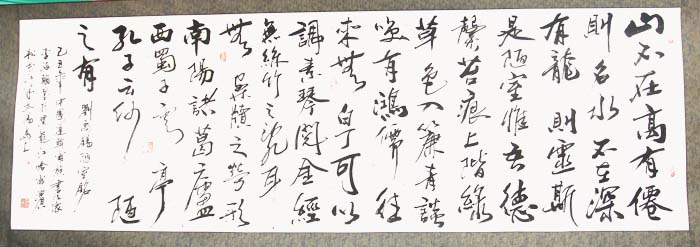 山不在高有僊
則名水不在深
有龍則靈斯
是陋室惟吾德
馨苔痕上階綠
草色入簾青談
笑有鴻儒往
來無白丁可以
調素琴閱金經
無絲竹之亂耳
無案牘之勞形
南陽諸葛廬
西蜀子雲亭
孔子云何陋
之有
劉禹錫陋室銘